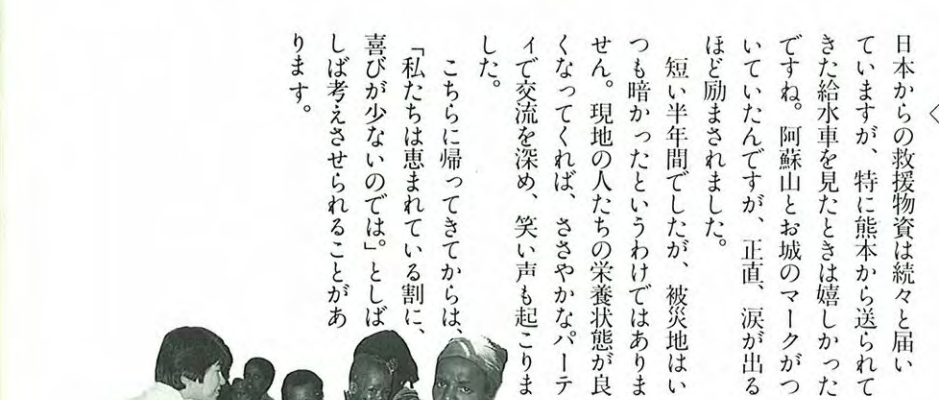 日本からの救援物資は続々と届い
ていますが、特に熊本から送られて
きた給水車を見たときは嬉しかった
ですね。阿蘇山とお城のマークがつ
いていたんですが、正直、涙が出る
ほど励まされました。
短い半年間でしたが、被災地はい
つも暗かったというわけではありま
せん。現地の人たちの栄養状態が良
くなってくれば、ささやかなパーテ
ィで交流を深め、笑い声も起こりま
した。
こちらに帰ってきてからは、
「私たちは恵まれている割に、
喜びが少ないのでは」。としば
しば考えさせられることがあ
ります。